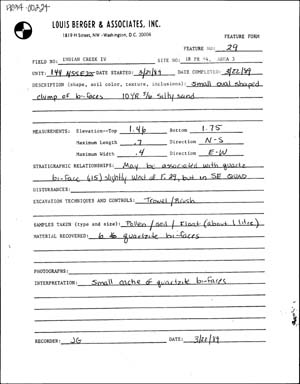 LOUIS BERGER & ASSOCIATES, INC.
1819 H Street, NW - Washington, D.C. 20006
FEATURE FORM
FEATURE NO: 29
FIELD: INDIAN CREEK IV SITE NO: 18 PR 94, AREA 3
UNIT: DATE STARTED: 3/21/89 DATE COMPLETED: 3/22/89
DESCRIPTION (shape, soil color, texture, inclusions): Small oval shaped
clump of bi-faces 10YR 5/6 silty sand
MEASUREMENTS: Elevation--Top 1.46 Bottom 1.75
Maximum Length .7 Direction N-S
Maximum Width .4 Direction E-W
STRATIGRAPHIC RELATIONSHIPS: May be associated with quartz
bi-face (15) slightly West of F. 29, but in SE QUAD
DISTURBANCES:
EXCAVATION TECHNIQUES AND CONTROLS: Trowel/Brush
SAMPLES TAKEN (type and size): Pollen / soil / Float (about 1 litre)
MATERIAL RECOVERED: 6 quartzite bi-faces
PHOTOGRAPHS:
INTERPRETATION: Small cache of quartzite bi-faces
RECORDER: JG DATE: 3/22/89